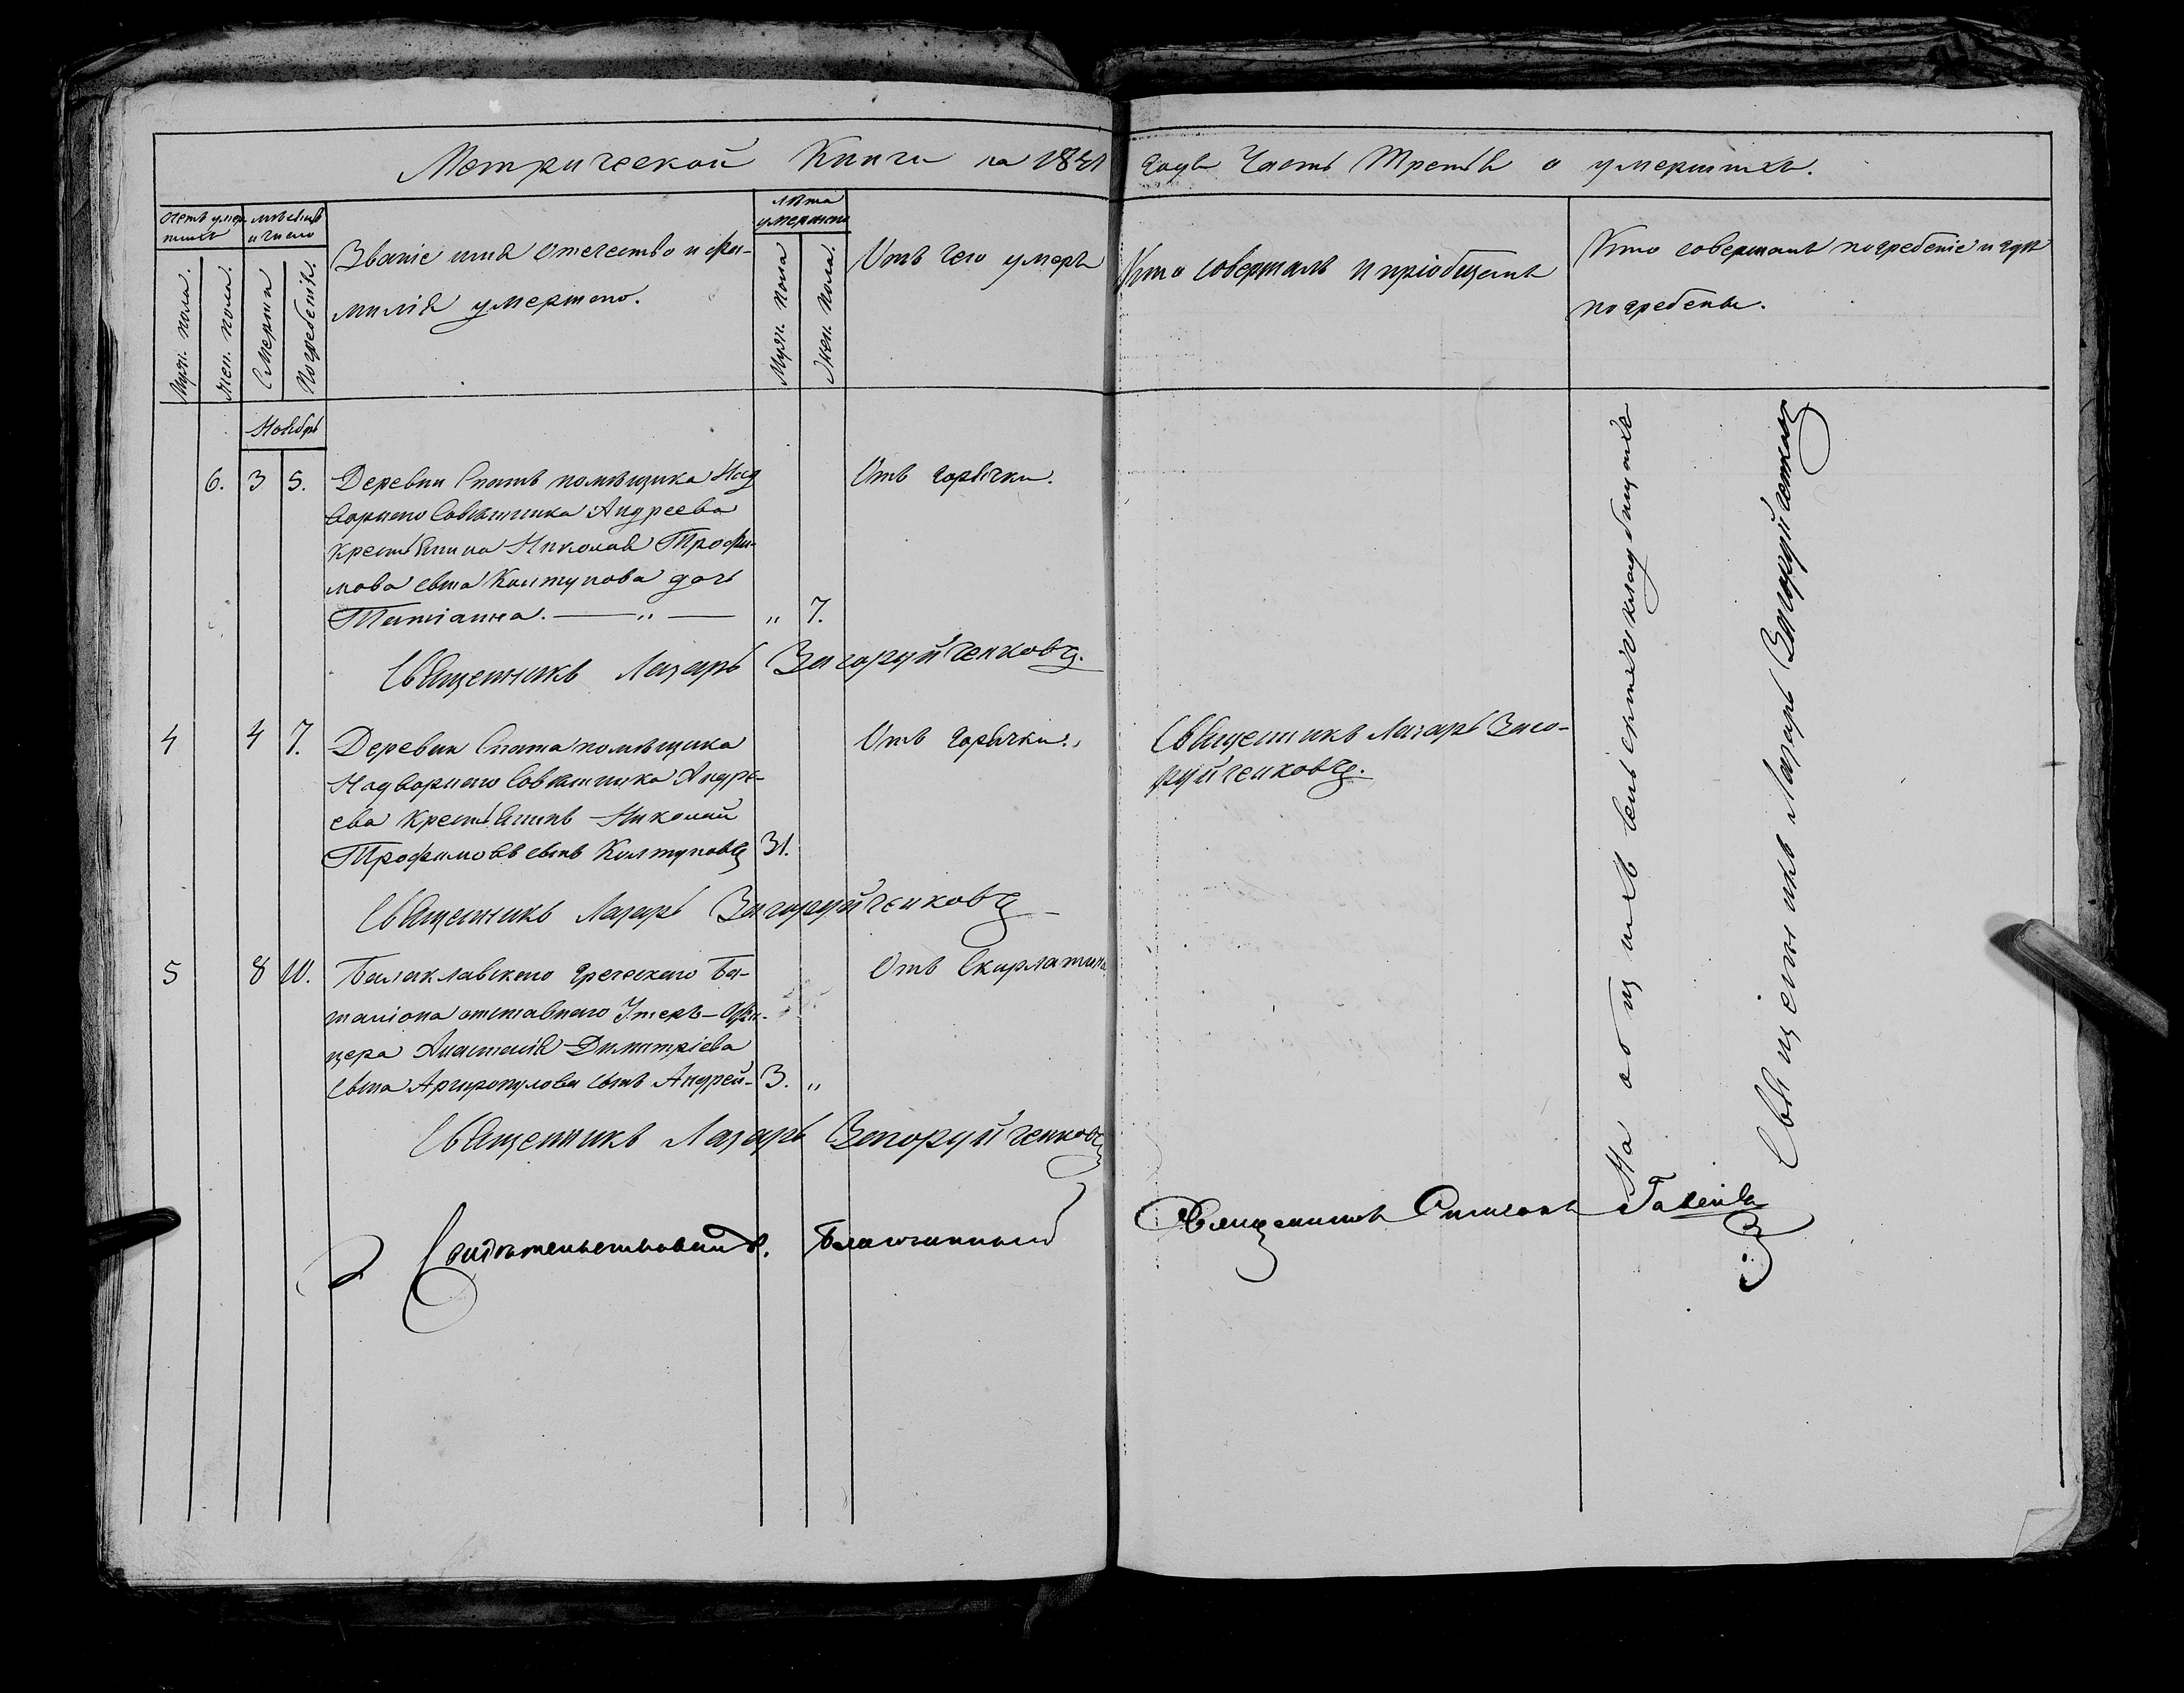 Метрической Книги на 1841 года Часть Третья о умершихъ.
Счетъ умер-
шихъ
Муж. пола.
Жен. пола.
мѣсяцъ
и число
Смерти
Погребенія.
Званіе имя отечество и фа-
милія умершаго.
лѣта
умершаго
Муж. пола
Жен. пола.
Отъ чего умеръ
Кто совершалъ и пріобщалъ
Кто совершалъ погребеніе и гдѣ
погребены.
Ноябрь
6. 3 5. Деревни помѣщика Над
ворнаго Совѣтника Андреева
крестьянина Николая Трофи-
мова сына Колтунова дочь
Татіанна. — „ — „ 7.
Отъ горячки.
Священникъ Лазарь Загоруйченковъ.
4 4 7. Деревни помѣщика
Надворнаго Совѣтника Андре-
ева крестьянинъ Николай
Трофимовъ сынъ Колтуновъ 31.
Отъ горячки.
Священникъ Лазарь Заго-
руйченковъ.
Священникъ Лазарь Загоруйченковъ
5 8 10. Балаклавскаго Греческаго Ба-
таліона отставнаго Унтеръ-Офи-
цера Анастасія Димитріева
сына Аргиропулова сынъ Андрей- 3. „
Отъ Скарлатины
Священникъ Лазарь Загоруйченковъ
На общихъ кладбищахъ
Священникъ Лазарь Загоруйченковъ
Свидѣтельствовалъ. Благочинный Священникъ